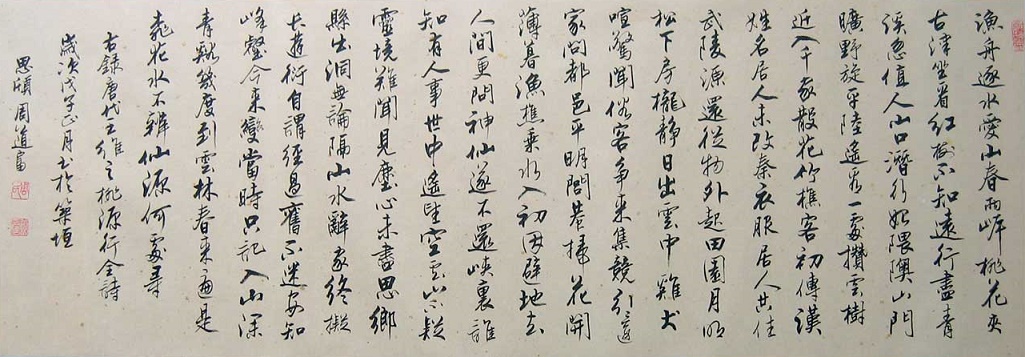 漁舟逐水愛山春兩岸桃花夾
古津坐看紅樹不知遠行盡青
溪忽值人山口潛行始隈隩山門
曠野旋平陸遙看一處攢雲樹
近入千家散花竹樵客初傳漢
姓名居人未改秦衣服居人共住
武陵源還從物外起田園月明
松下房櫳靜日出雲中雞犬
喧驚聞俗客爭來集競引還
家問都邑平明閭巷掃花開
薄暮漁樵乘水入初因避地去
人間更問神仙遂不還峽裏誰
知有人事世中遙望空雲山不疑
靈境難聞見塵心未盡思鄉
縣出洞無論隔山水辭家終擬
長遊衍自謂經過舊不迷安知
峰壑今來變當時只記入山深
青谿幾度到雲林春來遍是
桃花水不辨仙源何處尋
右錄唐代王維之桃源行全詩
歲次戊子正月書於築垣
周道富